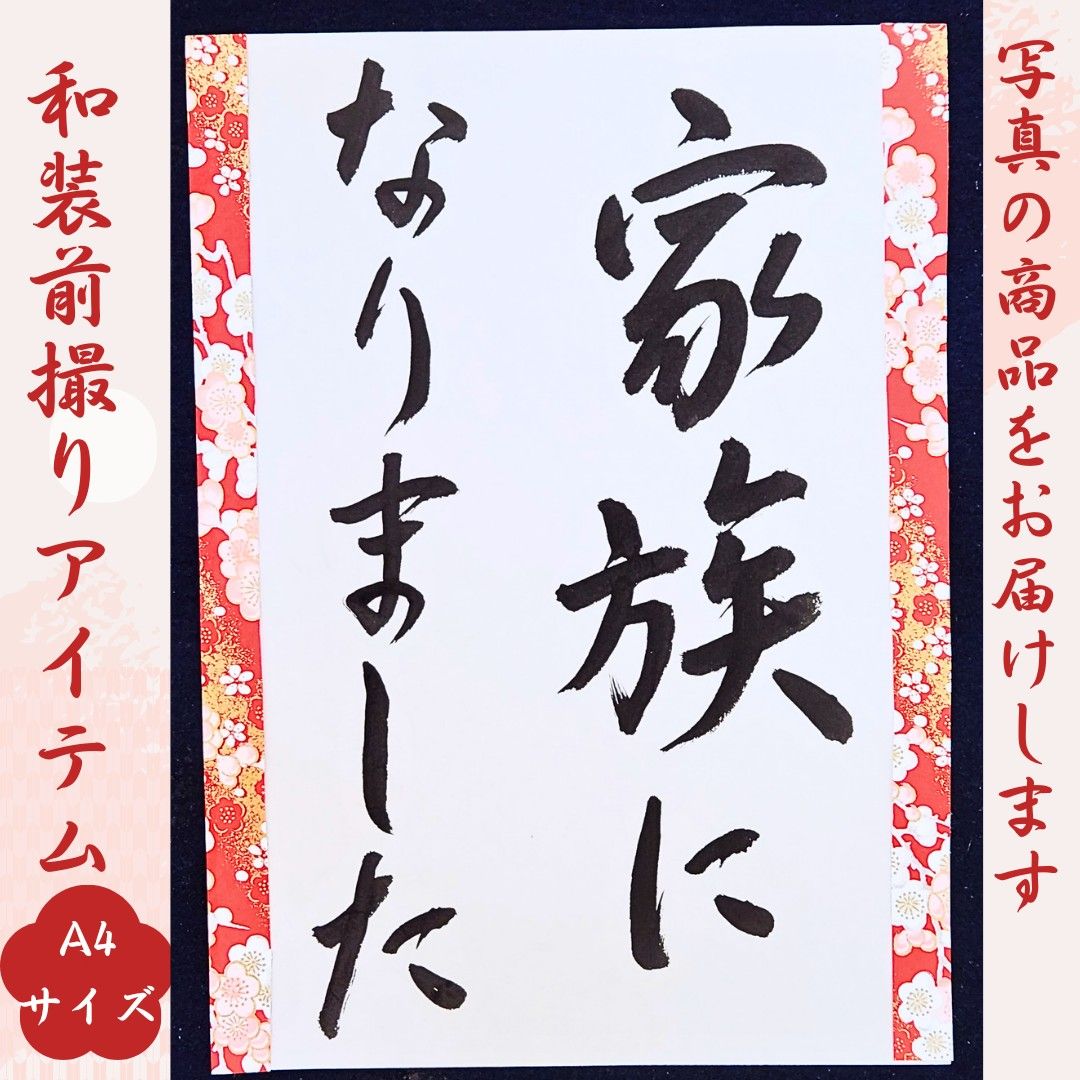 写真の商品をお届けします
家族に
なりました
和装前撮りアイテム
A4
サイズ